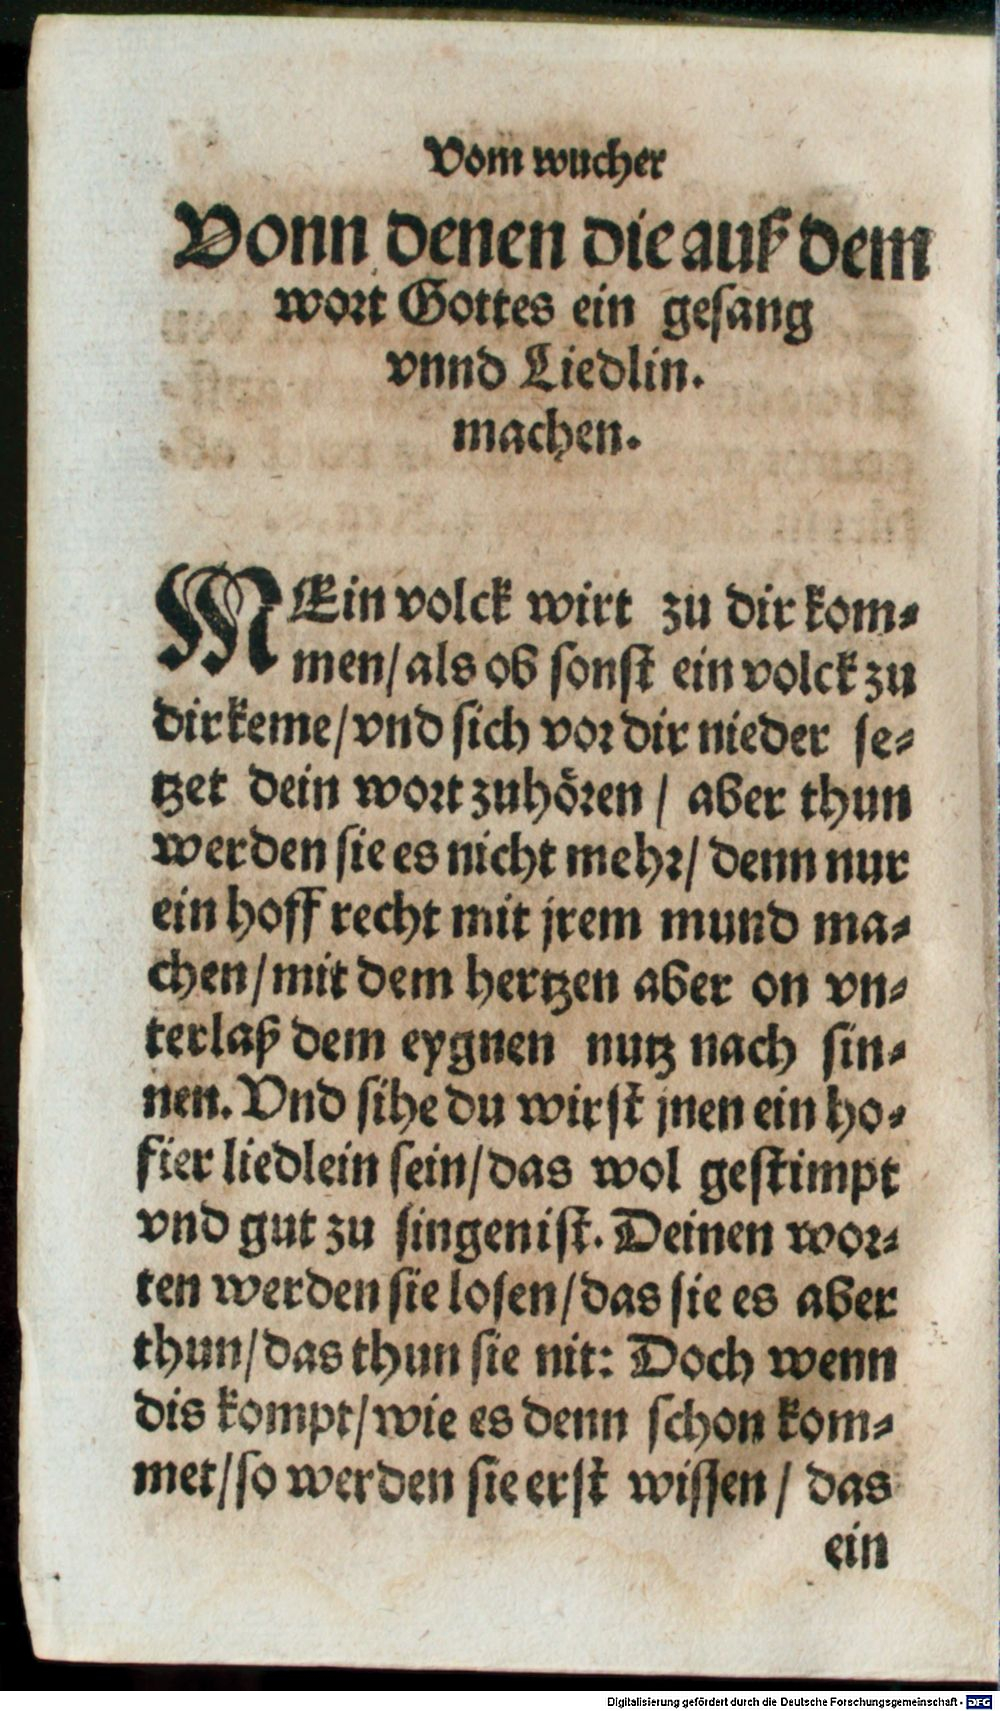 Vom wucher
Vonn denen die auß dem
wort Gottes ein gesang
vnnd Liedlin.
machen.
MEin volck wirt zu dir kom-
men/als ob sonst ein volck zu
dir keme/vnd sich vor dir nieder se-
tzet dein wort zuhören / aber thun
werden sie es nicht mehr/ denn nur
ein hoff recht mit jrem mund ma-
chen/mit dem hertzen aber on vn-
terlaß dem eygnen nutz nach sin-
nen. Vnd sihe du wirst jnen ein ho-
fier liedlein sein/das wol gestimpt
vnd gut zu singen ist. Deinen wor-
ten werden sie losen/das sie es aber
thun/das thun sie nit: Doch wenn
dis kompt/wie es denn schon kom-
met/so werden sie erst wissen / das
ein
Digitalisierung gefördert durch die Deutsche Forschungsgemeinschaft - DFG